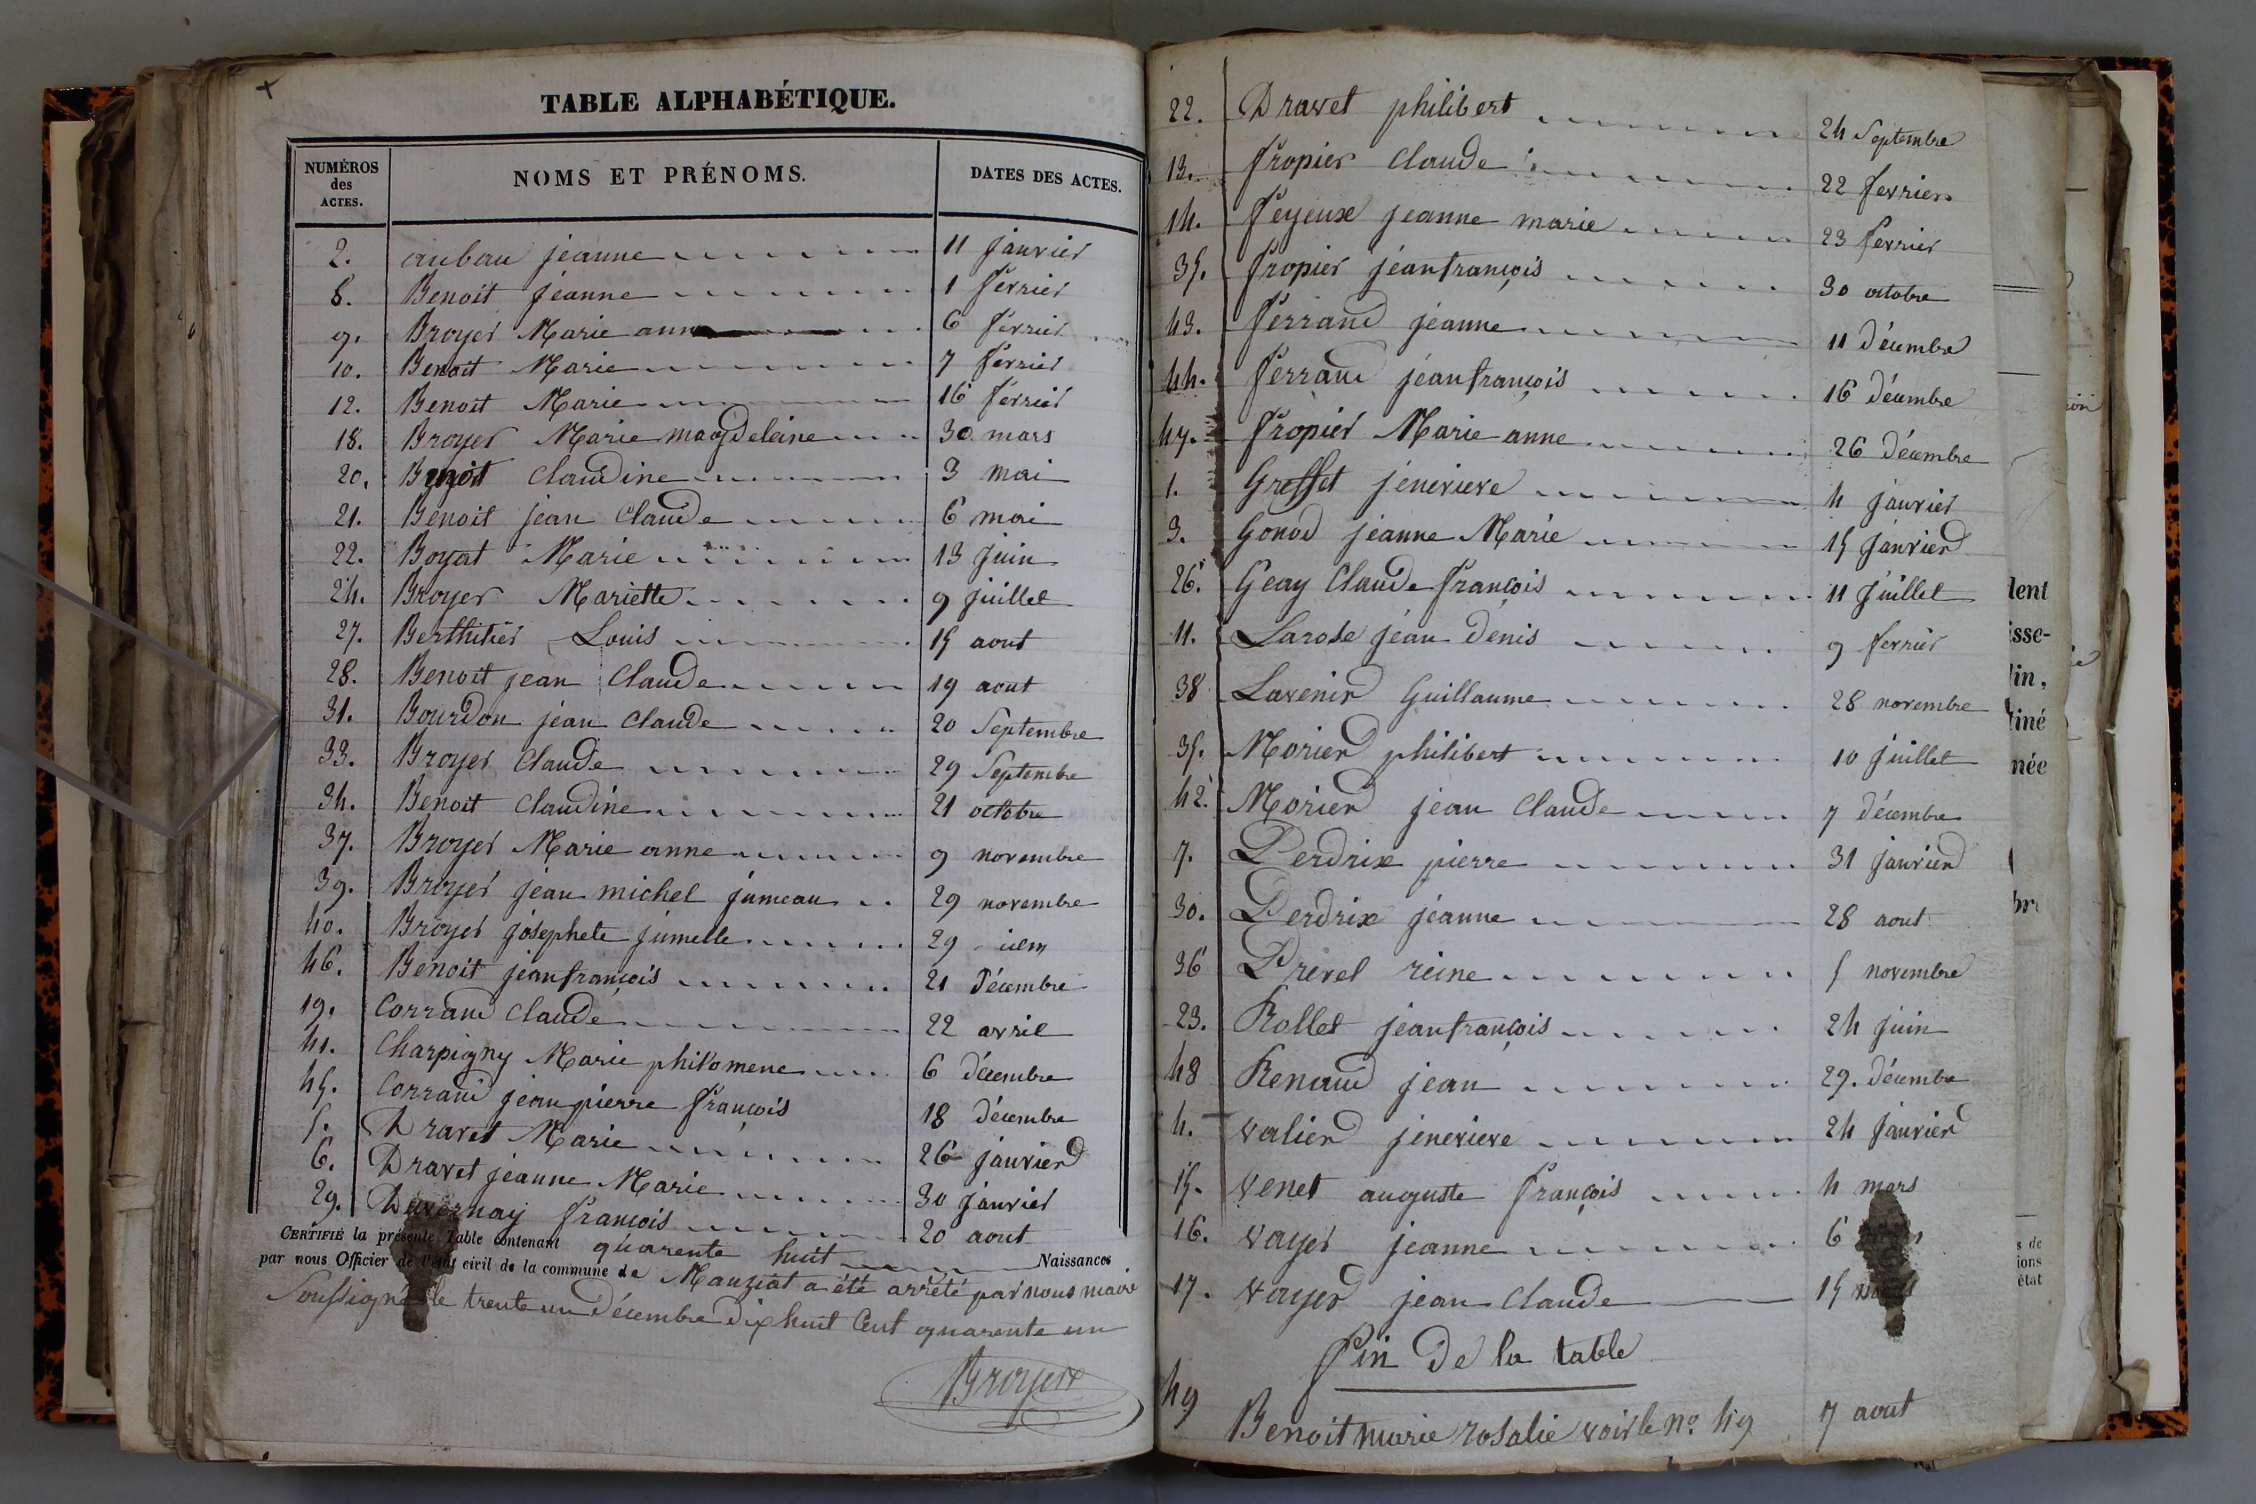 TABLE ALPHABÉTIQUE.
NUMÉROS des ACTES. NOMS ET PRÉNOMS. DATES DES ACTES.
2. aubau jeanne 11 janvier
8. Benoit jeanne 1 février
9. Broyer Marie anne 6 février
10. Benoit Marie 7 février
12. Benoit Marie 16 février
18. Broyer Marie magdeleine 30 mars
20. Benoit Claudine 3 mai
21. Benoit jean Claude 6 mai
22. Boyat Marie 13 juin
24. Broyer Mariette 9 juillet
27. Berthitier Louis 15 aout
28. Benoit jean Claude 19 aout
31. Bourdon jean Claude 20 Septembre
33. Broyer Claude 29 Septembre
34. Benoit Claudine 21 octobre
37. Broyer Marie anne 9 novembre
39. Broyer jean michel jumeau 29 novembre
40. Broyer josephete jumelle 29 idem
46. Benoit jean françois 21 Décembre
19. Corraud Claude 22 avril
41. Charpigny Marie philomene 6 décembre
45. Corraud jean pierre françois 18 décembre
5. Dravet Marie 26 janvier
6. Dravet jeanne Marie 30 janvier
29. Duvernay françois 20 aout
CERTIFIÉ la présente Table contenant quarente huit Naissances
par nous Officier de l'état civil de la commune de Manziat a été arrêté par nous maire
Soussigné le trente un Décembre dix huit Cent quarente un
Broyer
22. Dravet philibert 24 Septembre
13. fropier Claude 22 fevrier
14. feyeux jeanne marie 23 fevrier
35. fropier jean françois 30 octobre
43. ferraud jeanne 11 décembre
44. ferraud jean françois 16 décembre
47. fropier Marie anne 26 décembre
1. Greffet jenevieve 4 janvier
3. Gonod jeanne Marie 15 janvier
26. Geay Claude françois 11 juillet
11. Larose jean denis 9 fevrier
38 Lavenir Guillaume 28 novembre
35. Morier philibert 10 juillet
42. Morier jean Claude 7 décembre
7. Perdrix pierre 31 janvier
30. Perdrix jeanne 28 aout
36 Prevel reine 5 novembre
23. Rollet jean françois 24 juin
48 Renaud jean 29. décembre
4. valier jenevieve 24 janvier
15. venet auguste françois 4 mars
16. vayer jeanne 6
17. vayer jean Claude 15 mars
fin de la table
49 Benoit marie rosalie voir le no. 49 7 aout